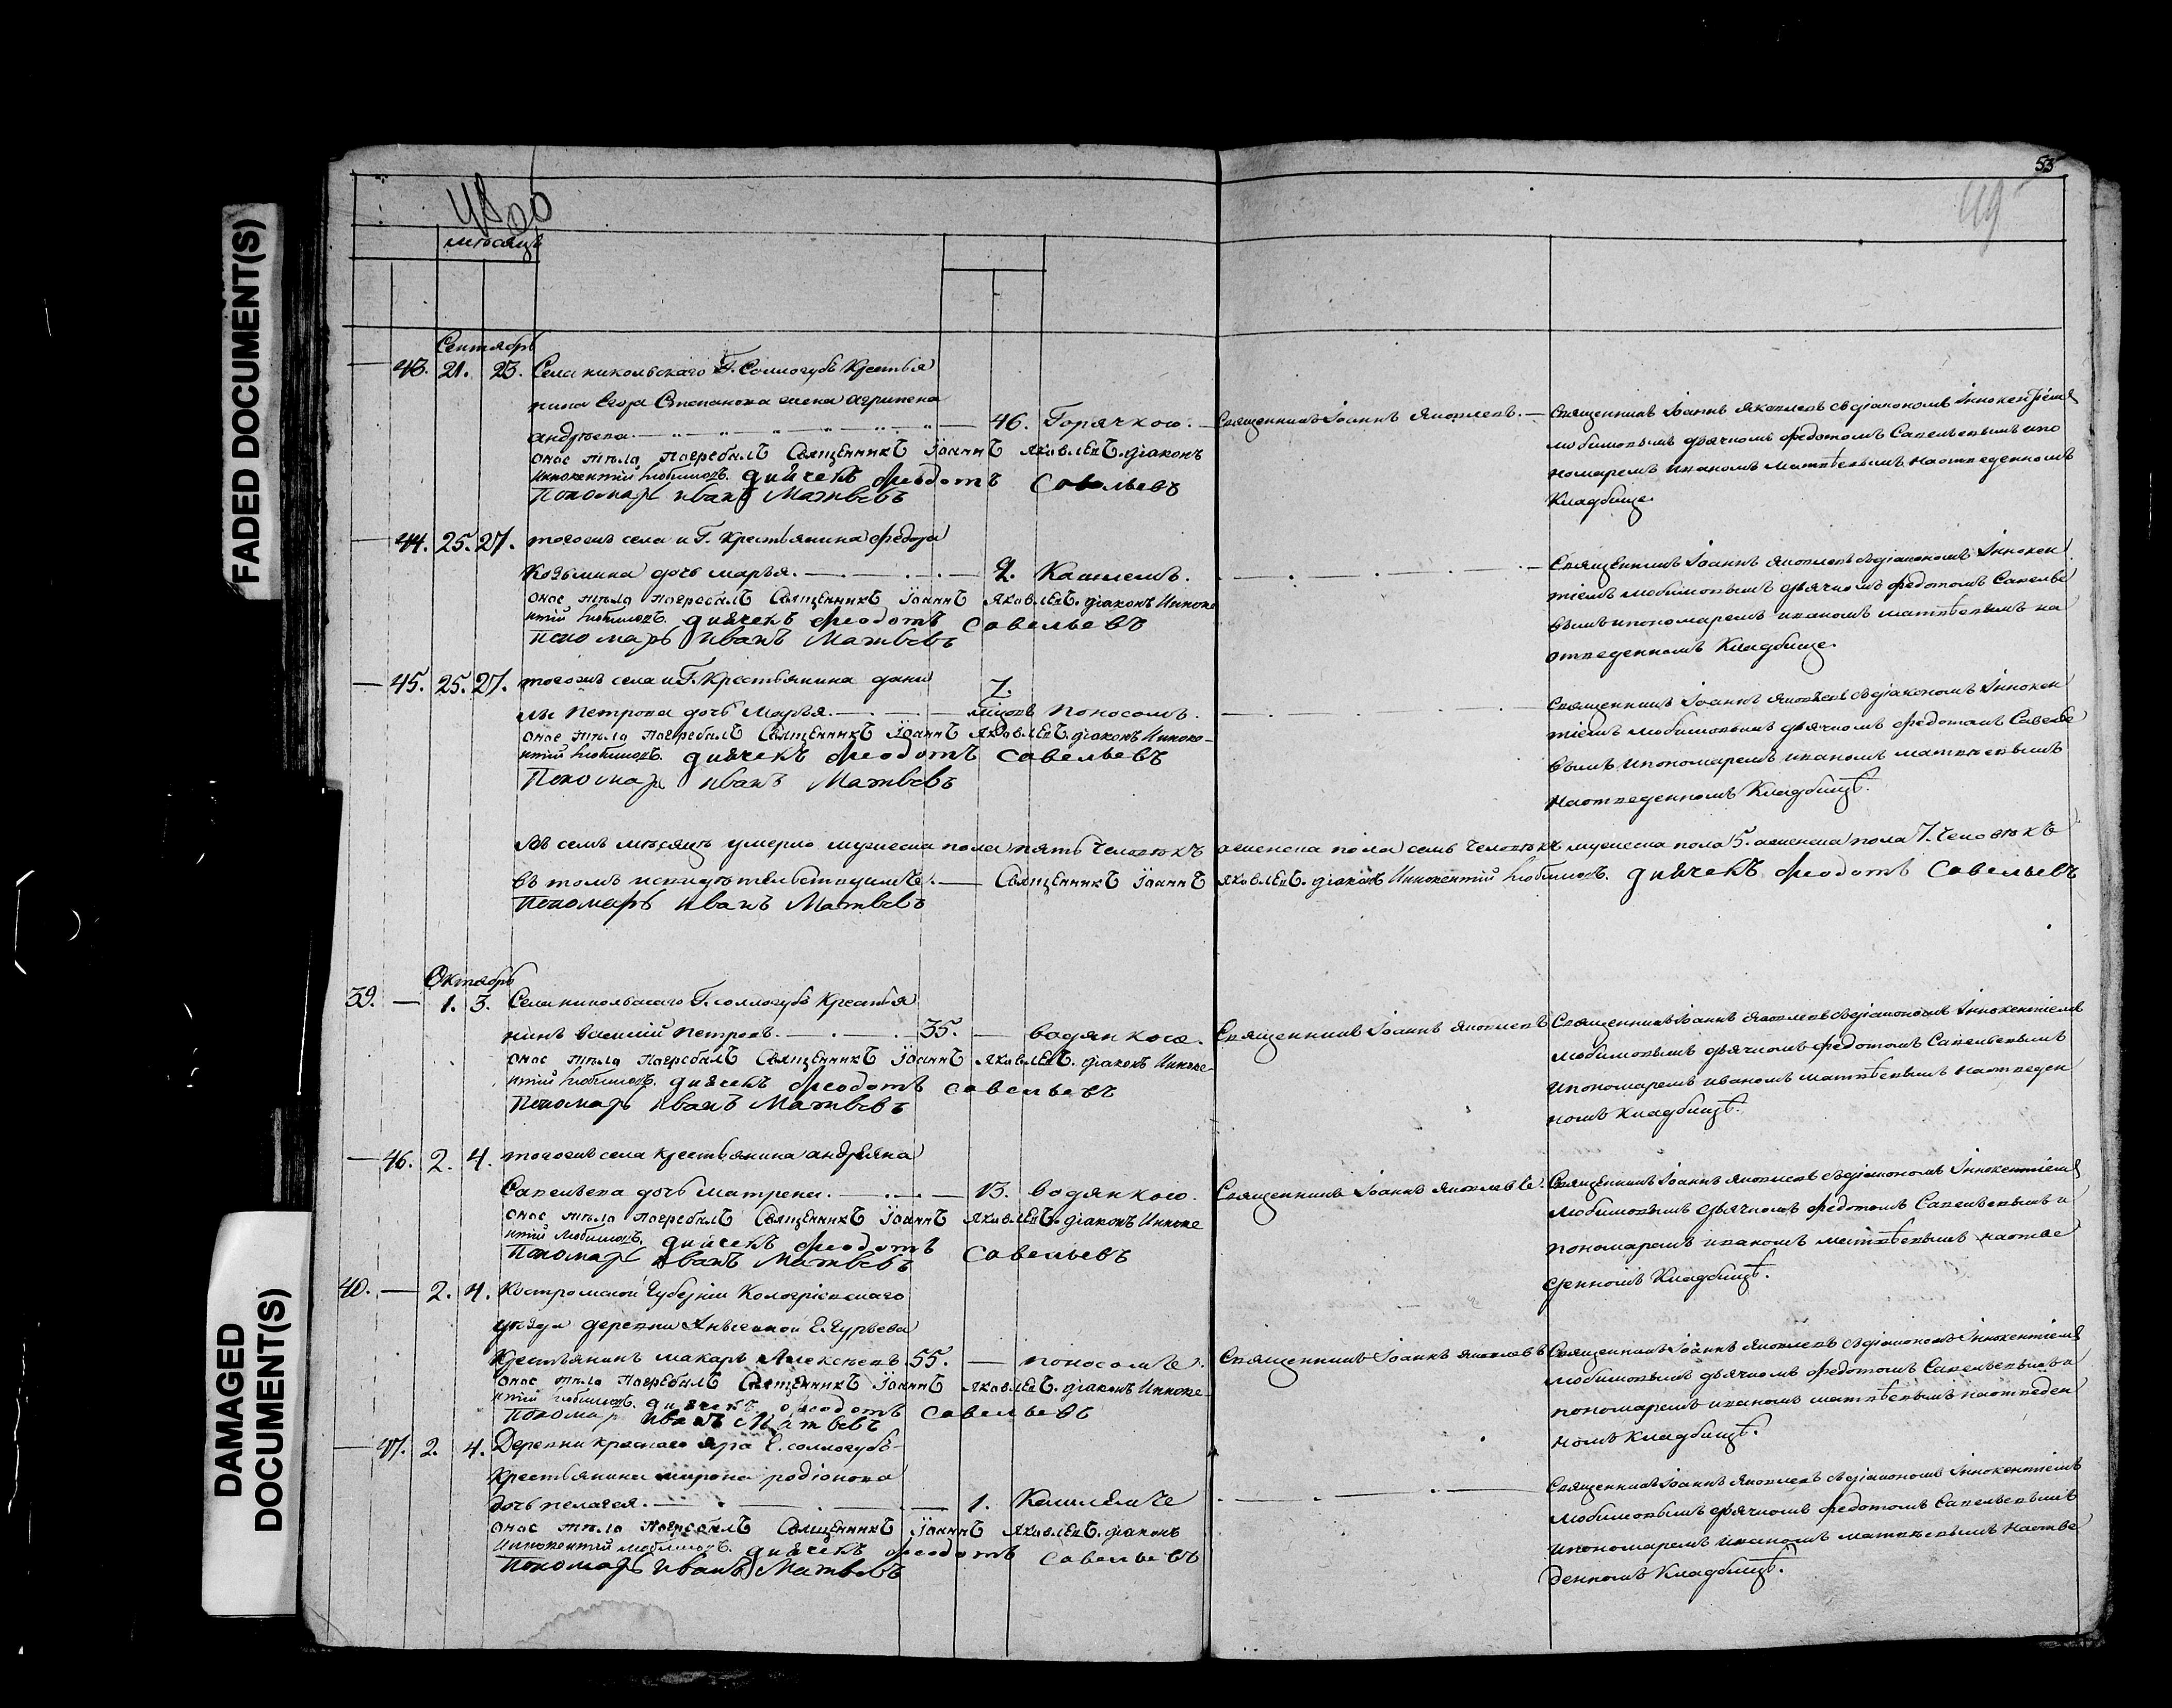 FADED DOCUMENT(S)
DAMAGED DOCUMENT(S)
53
49
мѣсяцъ
Сентябрь
43. 21. 23. Села никольскаго Г. Соллогубъ крестья
нина Егора Степанова жена агрипена
андрѣева. 46. Горячкою. Священникъ Іоаннъ Яковлевъ. Священникъ Іоаннъ Яковлевъ съ діакономъ Іннокентіемъ
любимовымъ дьячкомъ Федотомъ Савельевымъ и по
номаремъ иваномъ матвѣевымъ на отведенномъ
кладбище.
оное тѣло погребалъ Священникъ Іоаннъ Яковлевъ. діаконъ
Иннокентій Любимовъ. дьячекъ Феодотъ Савельевъ
Пономарь Иванъ Матвѣевъ
44. 25. 27. тогожъ села и Г. крестьянина Федора
Козьмина дочь марья. 2. Кашлемъ. Священникъ Іоаннъ Яковлевъ съ діакономъ Іннокен
тіемъ любимовымъ дьячкомъ федотомъ Савелье
вымъ и пономаремъ иваномъ матвѣевымъ на
отведенномъ кладбище.
оное тѣло погребалъ Священникъ Іоаннъ Яковлевъ. діаконъ Инноке
нтій Любимовъ. дьячекъ Феодотъ Савельевъ
Пономарь Иванъ Матвѣевъ
45. 25. 27. тогожъ села и Г. крестьянина дани
лы Петрова дочь Марья. 7. мѣцовъ поносомъ. Священникъ Іоаннъ Яковлевъ съ діакономъ Іннокен
тіемъ любимовымъ дьячкомъ федотомъ Савелье
вымъ и пономаремъ иваномъ матвѣевымъ
на отведенномъ кладбищѣ.
оное тѣло погребалъ Священникъ Іоаннъ Яковлевъ. діаконъ Инноке
нтій Любимовъ. дьячекъ Феодотъ Савельевъ
Пономарь Иванъ Матвѣевъ
Въ семъ мѣсяцѣ умерло мужеска пола пять человѣкъ а женска пола семь человѣкъ мужеска пола 5. а женска пола 7. человѣкъ
въ томъ и свидѣтельствуемъ. Священникъ Іоаннъ Яковлевъ. діаконъ Иннокентій Любимовъ. дьячекъ Феодотъ Савельевъ
Пономарь Иванъ Матвѣевъ
Октябрь
39. 1. 3. Села никольскаго Г. соллогубъ крестья
нинъ василій петровъ. 35. водянкою. Священникъ Іоаннъ Яковлевъ Священникъ Іоаннъ Яковлевъ съ діакономъ Іннокентіемъ
любимовымъ дьячкомъ федотомъ Савельевымъ
и пономаремъ иваномъ матвѣевымъ на отведен
номъ кладбищѣ.
оное тѣло погребалъ Священникъ Іоаннъ Яковлевъ. діаконъ Инноке
нтій Любимовъ. дьячекъ Феодотъ Савельевъ
Пономарь Иванъ Матвѣевъ
46. 2. 4. тогожъ села крестьянина андреяна
Савельева дочь матрена. 13. водянкою. Священникъ Іоаннъ Яковлевъ. Священникъ Іоаннъ Яковлевъ съ діакономъ Іннокентіемъ
любимовымъ дьячкомъ федотомъ Савельевымъ и
пономаремъ иваномъ матвѣевымъ на отве
денномъ кладбищѣ.
оное тѣло погребалъ Священникъ Іоаннъ Яковлевъ. діаконъ Инноке
нтій Любимовъ. дьячекъ Феодотъ Савельевъ
Пономарь Иванъ Матвѣевъ
40. 2. 4. Костромской Губерніи Кологривскаго
уѣзда деревни Г. Гурьева
крестьянинъ макаръ Алексѣевъ. 55. поносомъ. Священникъ Іоаннъ Яковлевъ Священникъ Іоаннъ Яковлевъ съ діакономъ Іннокентіемъ
любимовымъ дьячкомъ федотомъ Савельевымъ и
пономаремъ иваномъ матвѣевымъ на отведен
номъ кладбищѣ.
оное тѣло погребалъ Священникъ Іоаннъ Яковлевъ. діаконъ Инноке
нтій Любимовъ. дьячекъ Феодотъ Савельевъ
Пономарь Иванъ Матвѣевъ
47. 2. 4. Деревни краснаго яра Г. соллогубъ
крестьянина мирона родіонова
дочь пелагея. 1. Кашлемъ Священникъ Іоаннъ Яковлевъ съ діакономъ Іннокентіемъ
любимовымъ дьячкомъ федотомъ Савельевымъ
и пономаремъ иваномъ матвѣевымъ на отве
денномъ кладбищѣ.
оное тѣло погребалъ Священникъ Іоаннъ Яковлевъ. діаконъ
Иннокентій Любимовъ. дьячекъ Феодотъ Савельевъ
Пономарь Иванъ Матвѣевъ